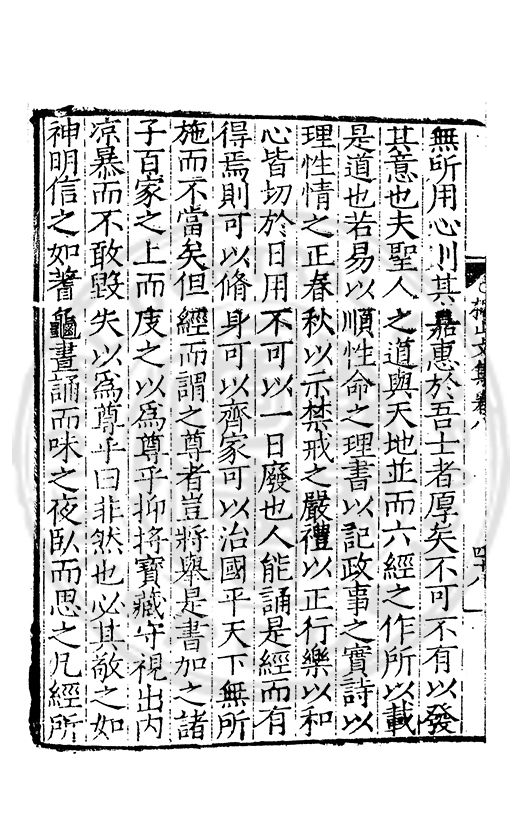 無所用心則其嘉惠於吾士者厚矣不可不有以發
其意也夫聖人之道與天地並而六經之作所以載
是道也若易以順性命之理書以記政事之實詩以
理性情之正春秋以示禁戒之嚴禮以正行樂以和
心皆切於日用不可以一日廢也人能誦是經而有
得焉則可以脩身可以齊家可以治國平天下無所
施而不當矣但經而謂之尊者豈將舉是書加之諸
子百家之上而庋之以為尊乎抑將寶藏守視出内
凉暴而不敢毀失以為尊乎曰非然也必其敬之如
神明信之如蓍龜晝誦而味之夜臥而思之凡經所
山文集卷八
四十八